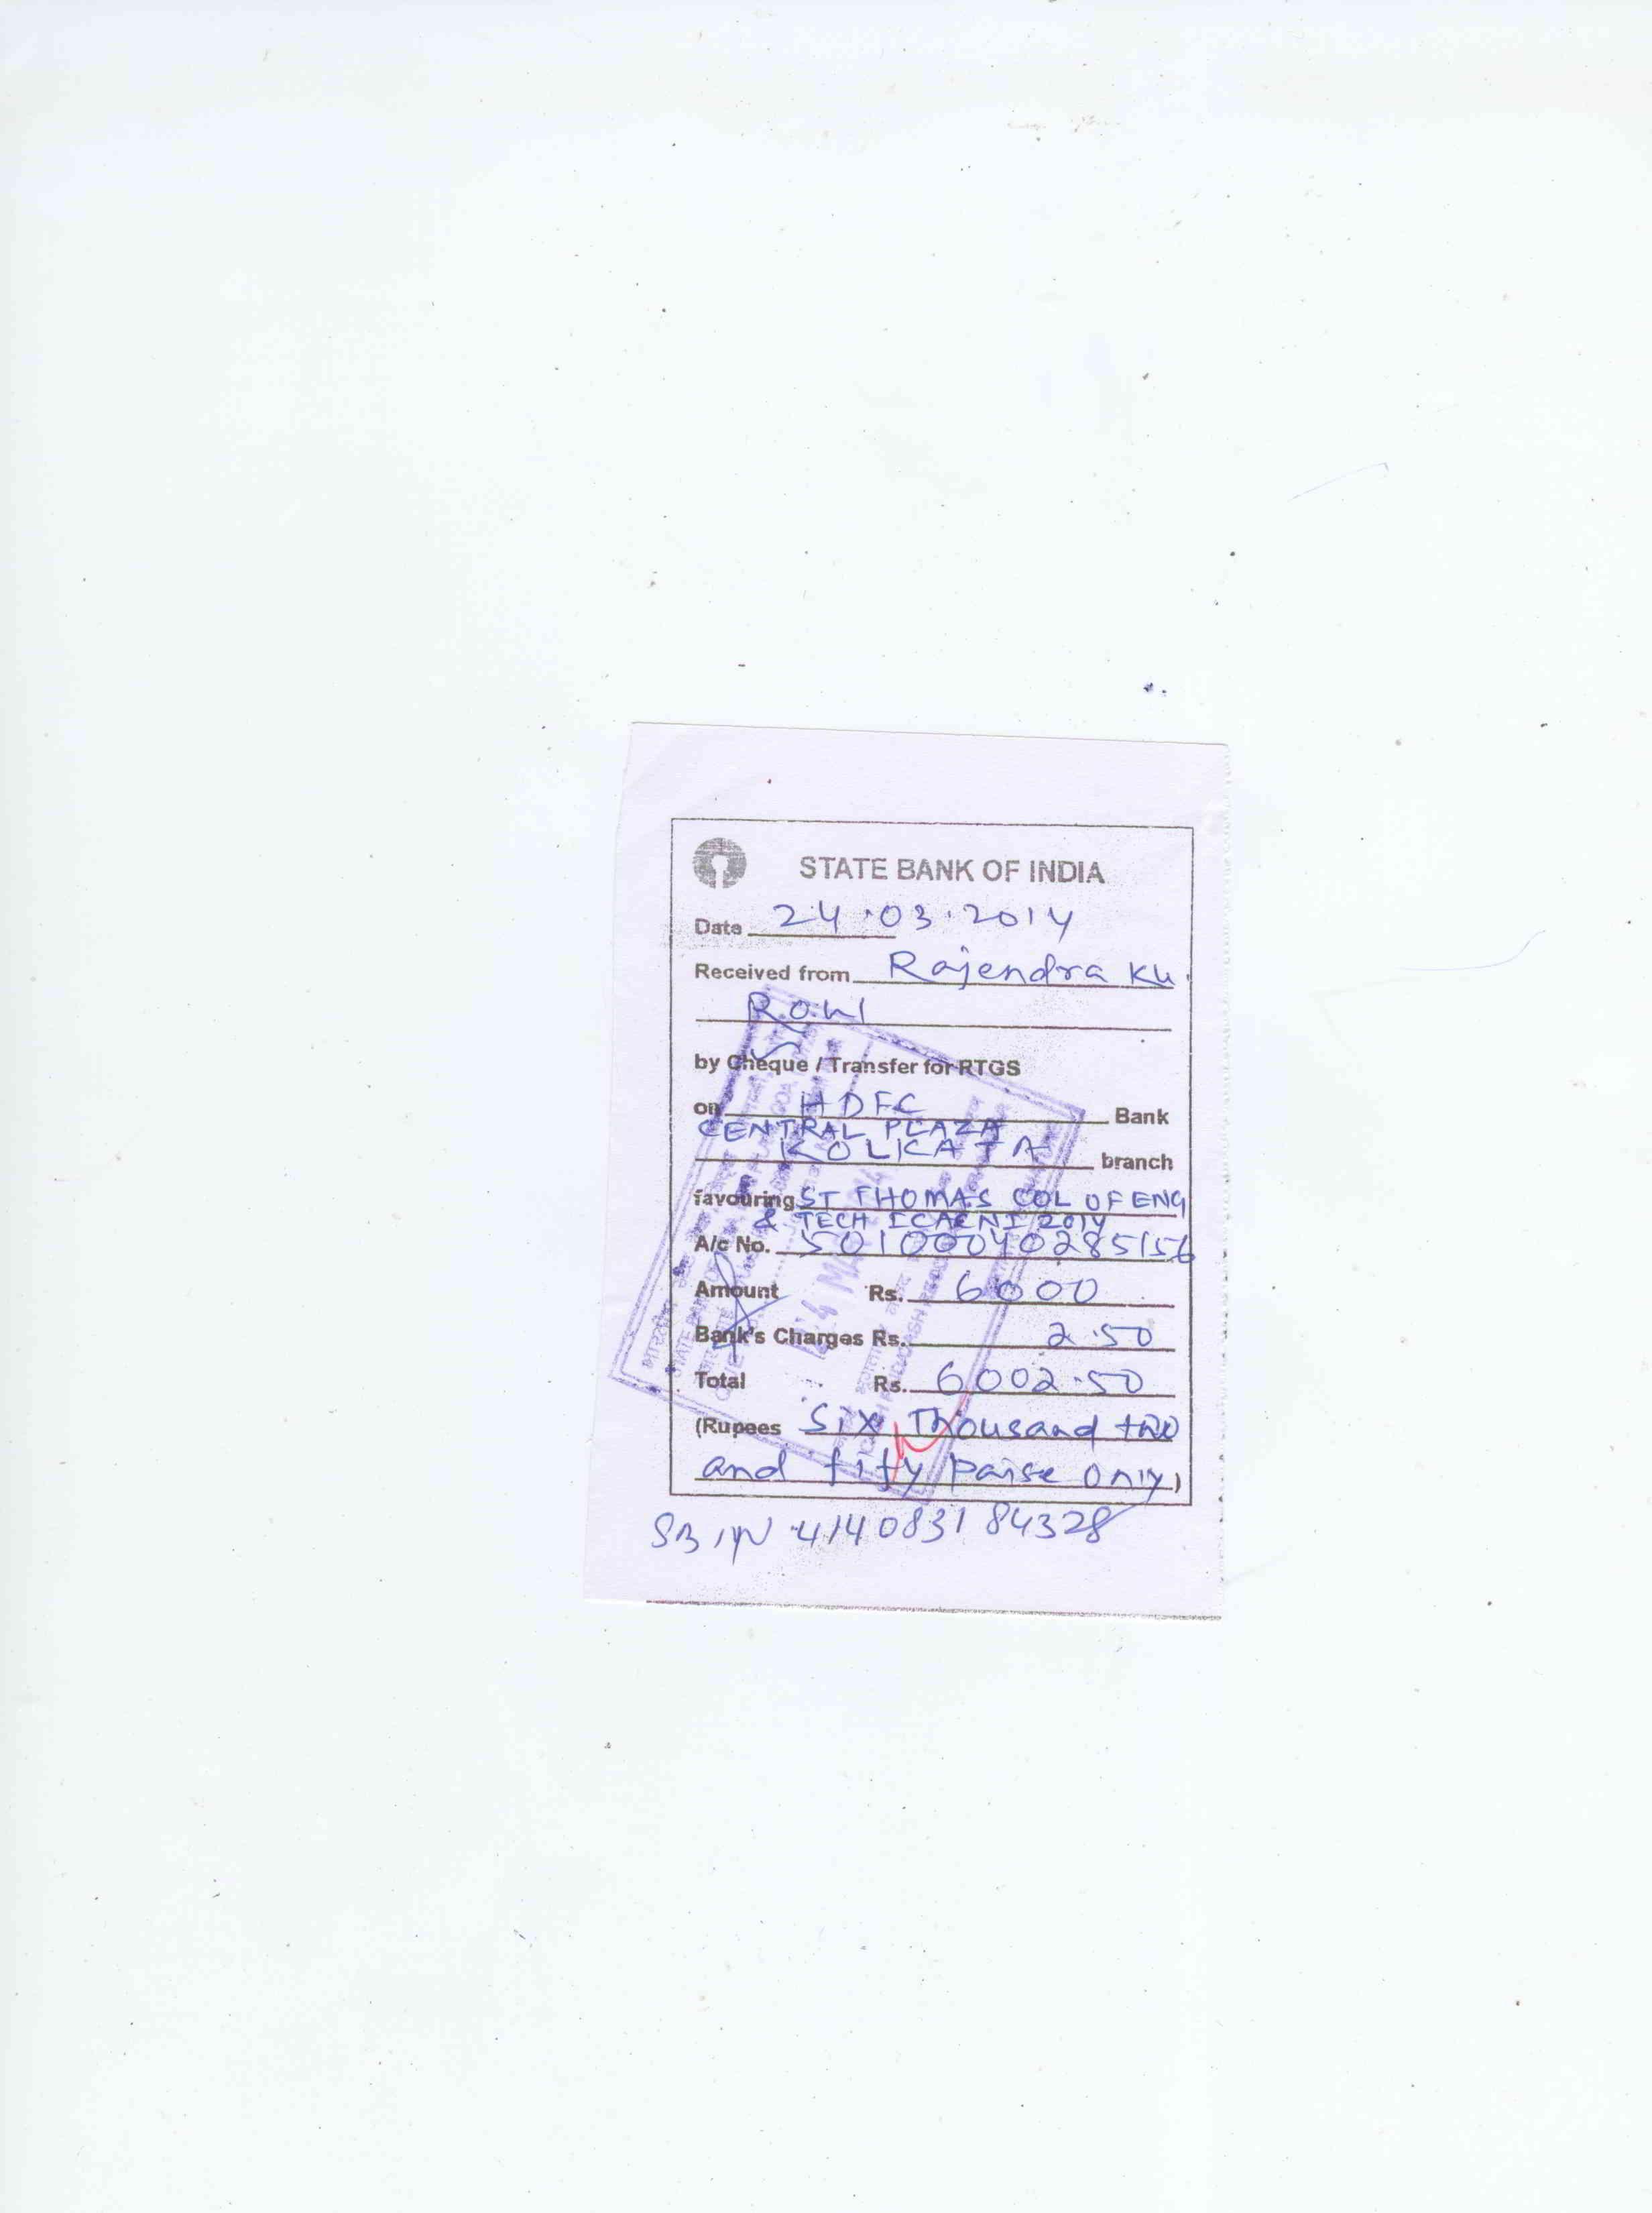 STATE BANK OF INDIA
Date 24.03.2014
Received from Rajendra Ku.
by Cheque / Transfer for RTGS
on HDFC Bank
CENTRAL PLAZA
KOLKATA branch
favouring ST THOMAS COL OF ENG
& TECH ICACNI 2014
A/c No. 50100040285156
Amount Rs. 6000
Bank's Charges Rs. 2.50
Total Rs. 6002.50
(Rupees Six Thousand two
and fify paise only)
24 MAR 2014